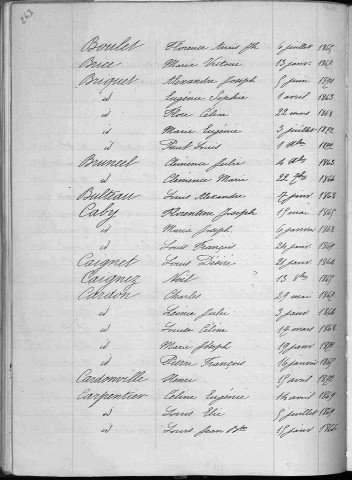 243
Boulet Florence 6 juillet 1865
Brice Marie Victoire 13 janv. 1862
Briquet Alexandre Joseph 5 juin
id Eugénie Sophie 1 avril 1863
id Flore Céline 22 mars 1868
id Marie Eugénie 3 juillet 1872
id Paul Louis 1
Bruneel Clémence Julie 4 1863
id Clémence Marie 22 7bre 1866
Bulteau Louis Alexandre 17 janv 1863
Caby Florentine Joseph 15 mai 1865
id Marie Joseph 6 janvier 1868
id Louis François 24 janv 1869
Caignet Louis Désiré 21 janv 1864
Caignez Noël 13 8bre 1865
Cardon Charles 29 mai 1862
id Léonie Julie 3 janv 1866
id Louise Céline 17 mars 1868
id Marie Joseph 19 janv
id Pierre François 16 janvier
Cardonville Henri 15 avril 1872
Carpentier Céline Eugénie 14 avril 1869
id Louis Elie 5 juillet 1869
id Louis Jean Bte 15 janv 1866